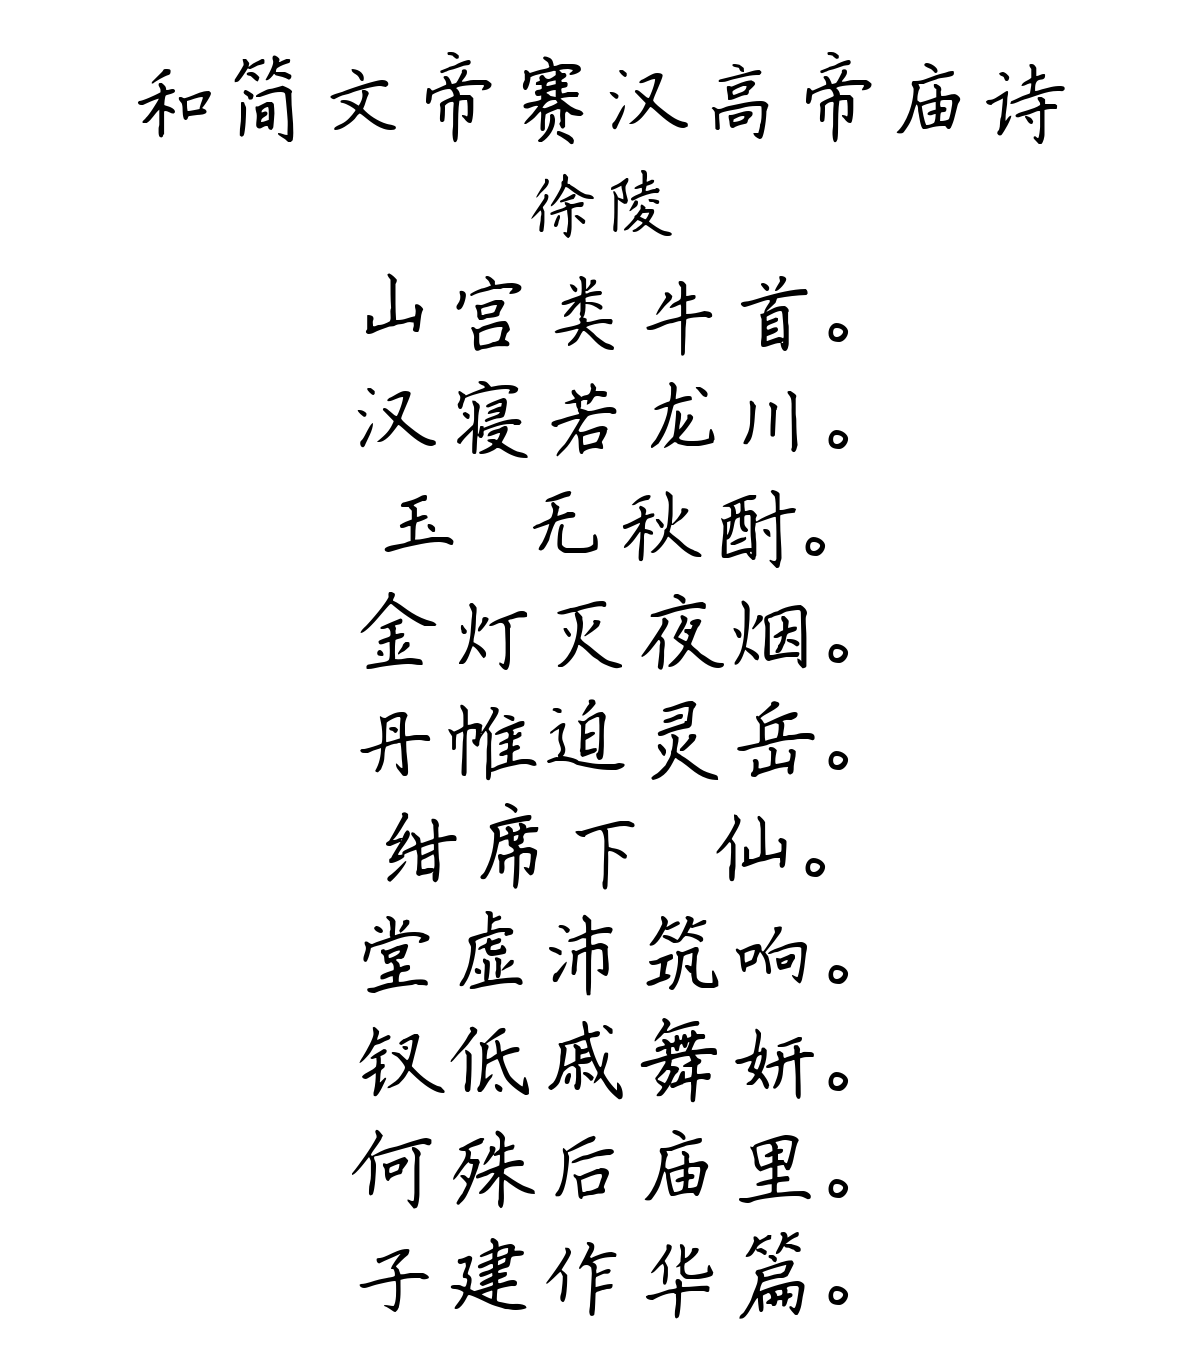 和简文帝赛汉高帝庙诗
徐陵
山宫类牛首。
汉寝若龙川。
玉 无秋酎。
金灯灭夜烟。
丹帷迫灵岳。
绀席下 仙。
堂虚沛筑响。
钗低戚舞妍。
何殊后庙里。
子建作华篇。